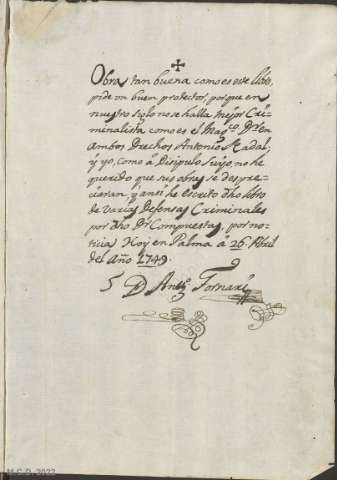 Obra tan buena como es este libro,
pide un buen protector, porque en
nuestro siglo no se halla mejor Cri-
minalista como es el Mag.co Dr. en
Ambos Drechos Antonio Nadal;
y yo, como à Disipulo Suyo, no he
querido que sus obras se despre-
ciaran, y ansi he escrito dho libro
de Varias Defensas Criminales
por dho Dr. Compuestas, por no-
ticia Hoy en Palma à 26. Abril
del Año 1749.
D Ant.o Fornari
M.C.D. 2022